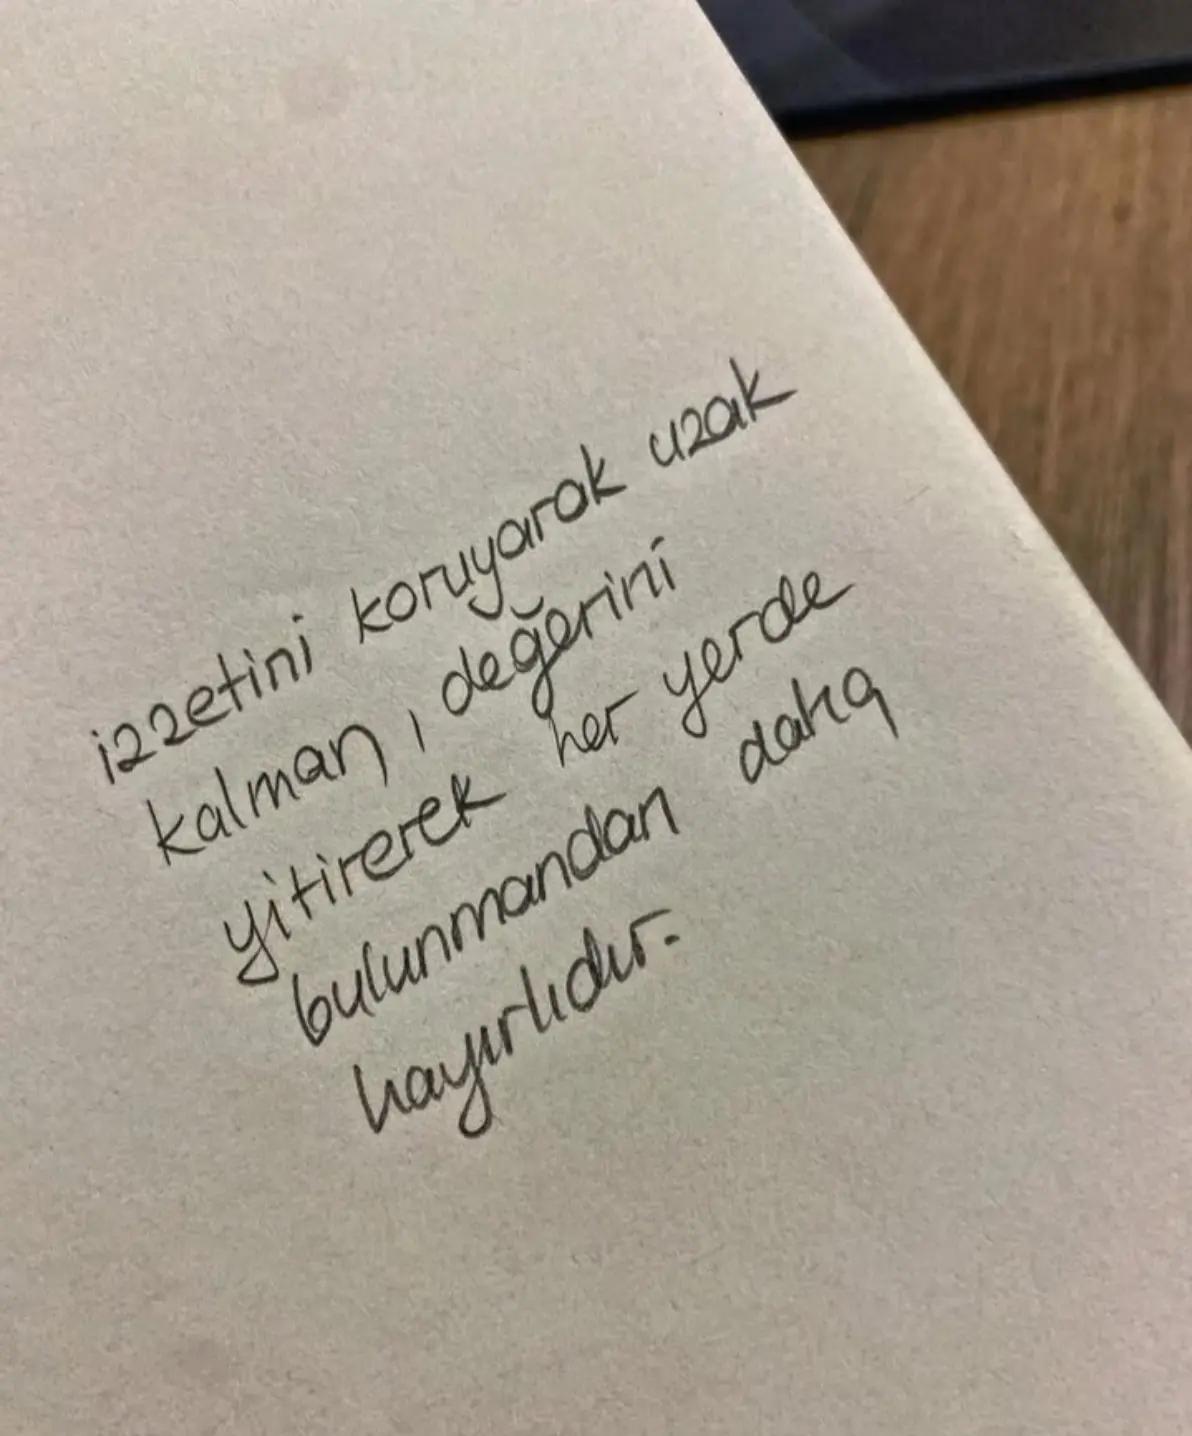 izzetini koruyarak uzak
kalman, değerini
yitirerek her yerde
bulunmandan daha
hayırlıdır.